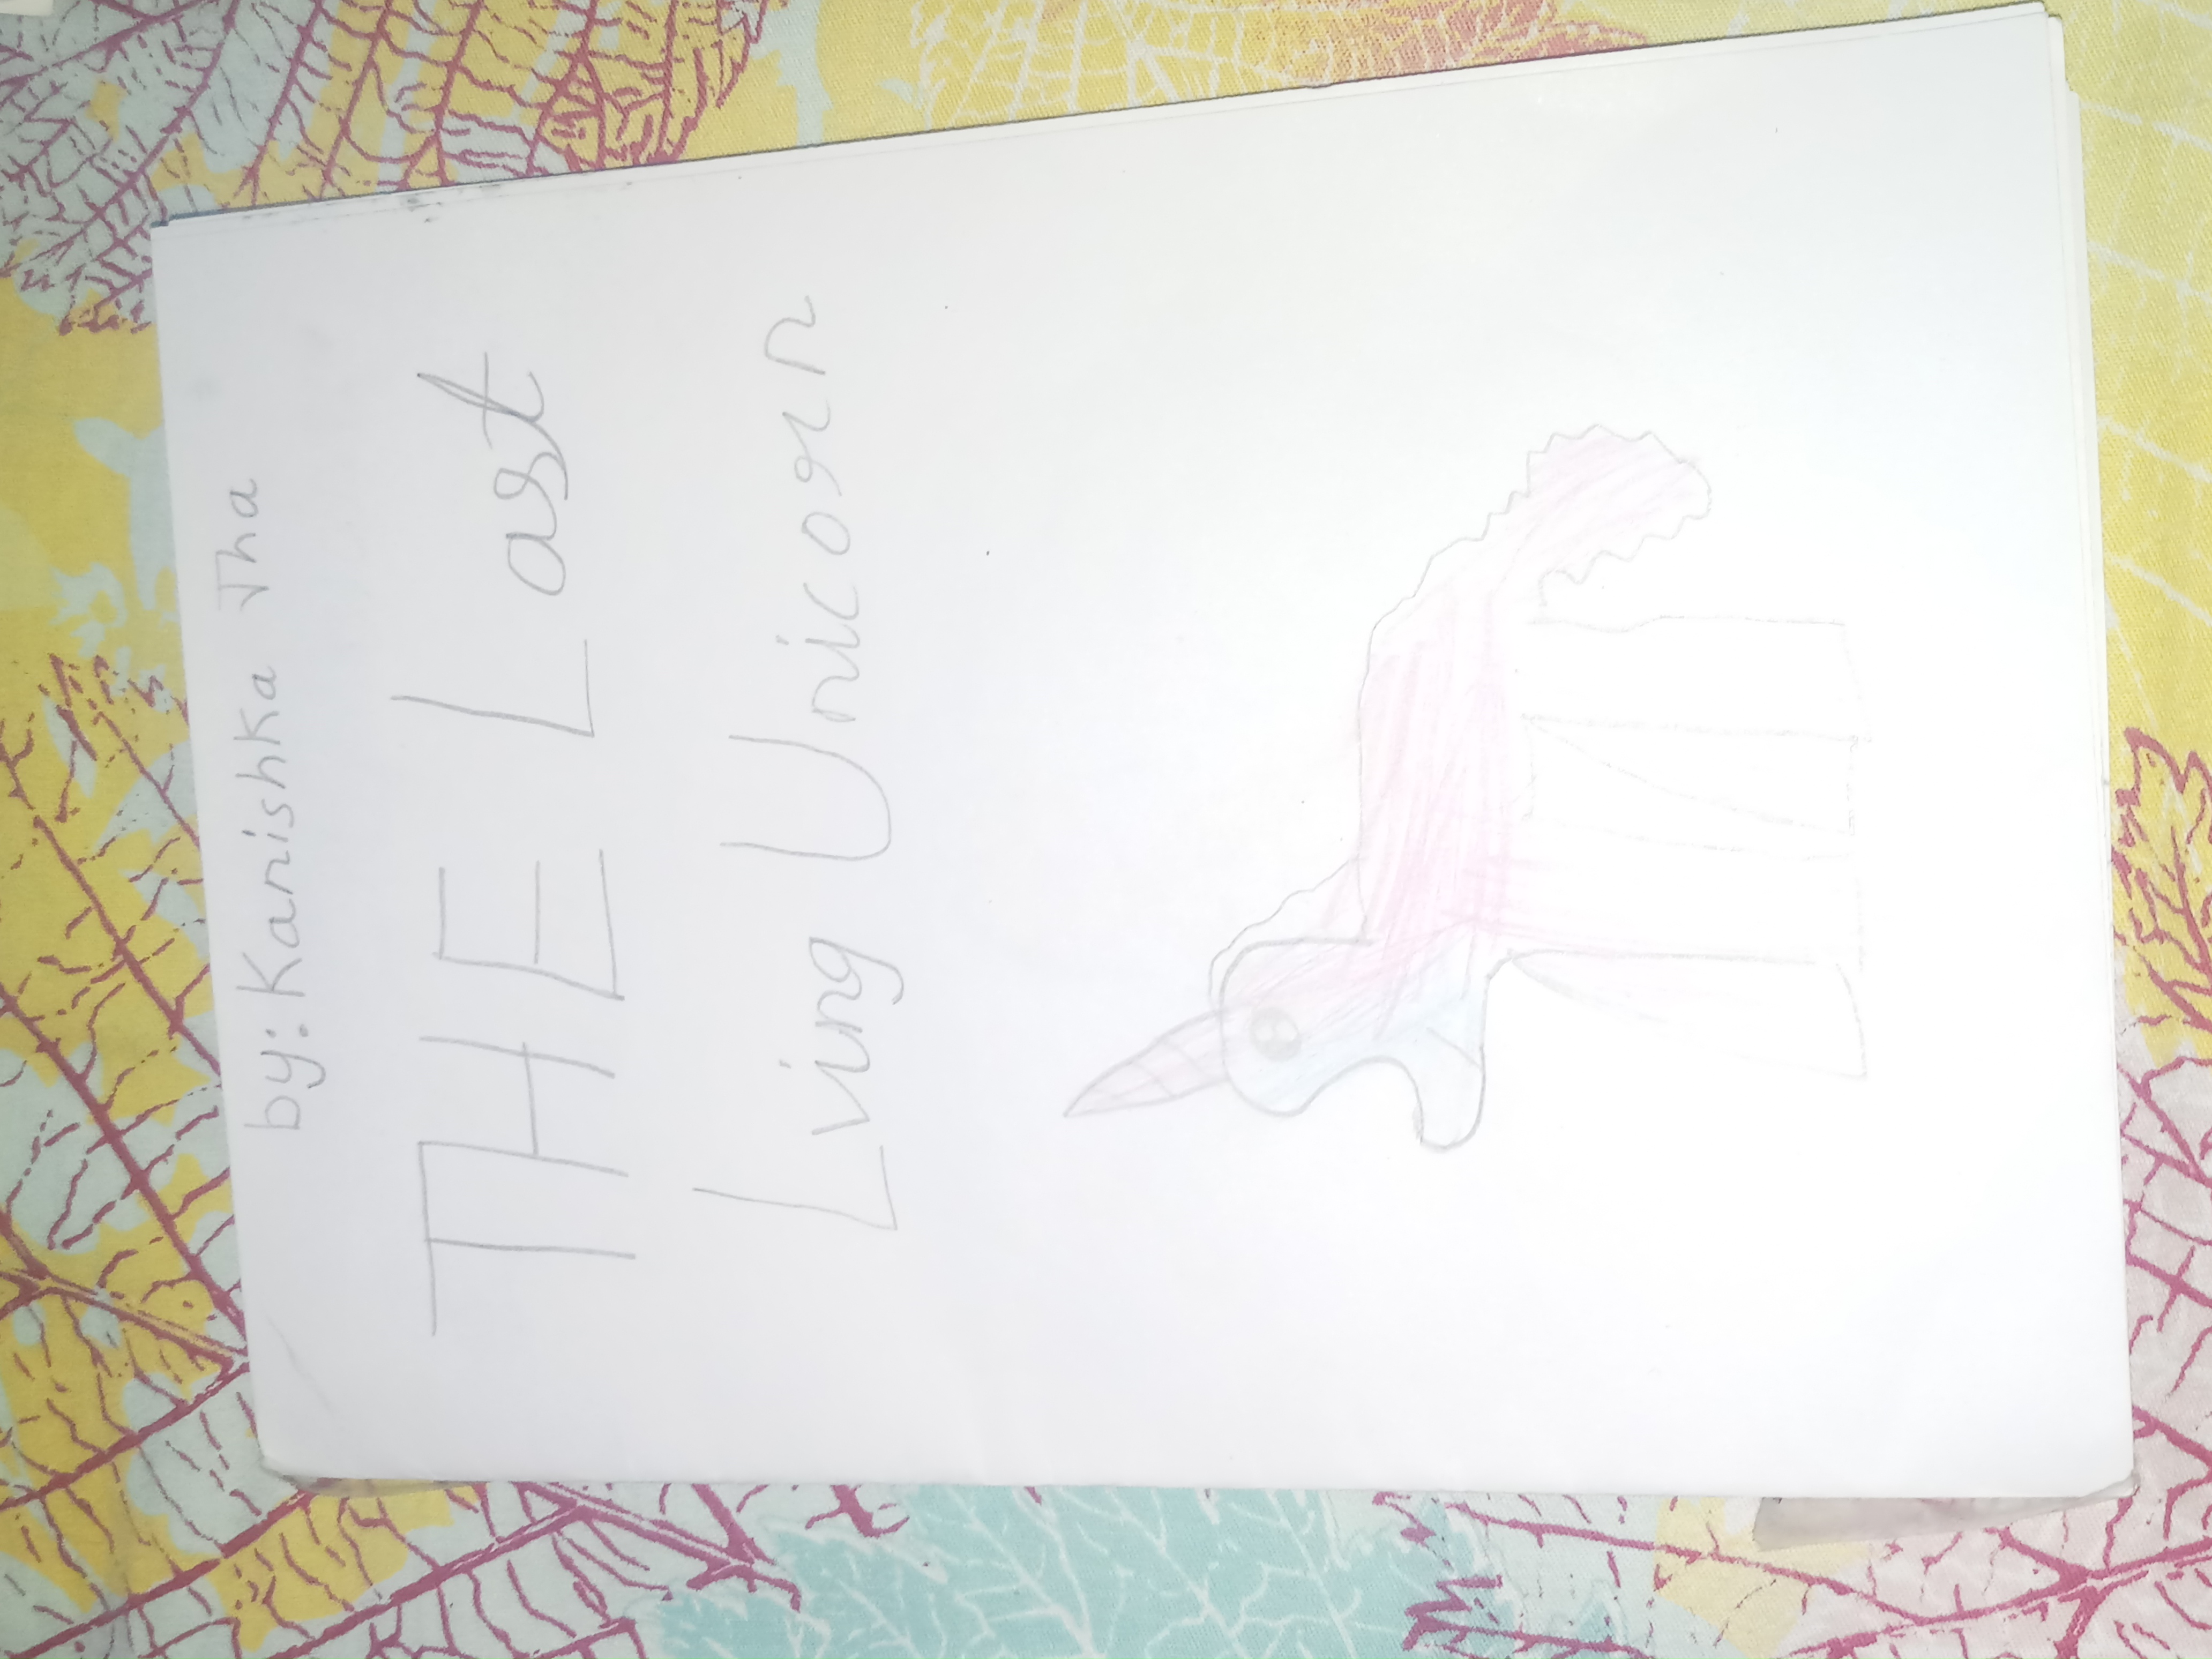 by: Kanishka Jha
THE Last
Lving Unicorn